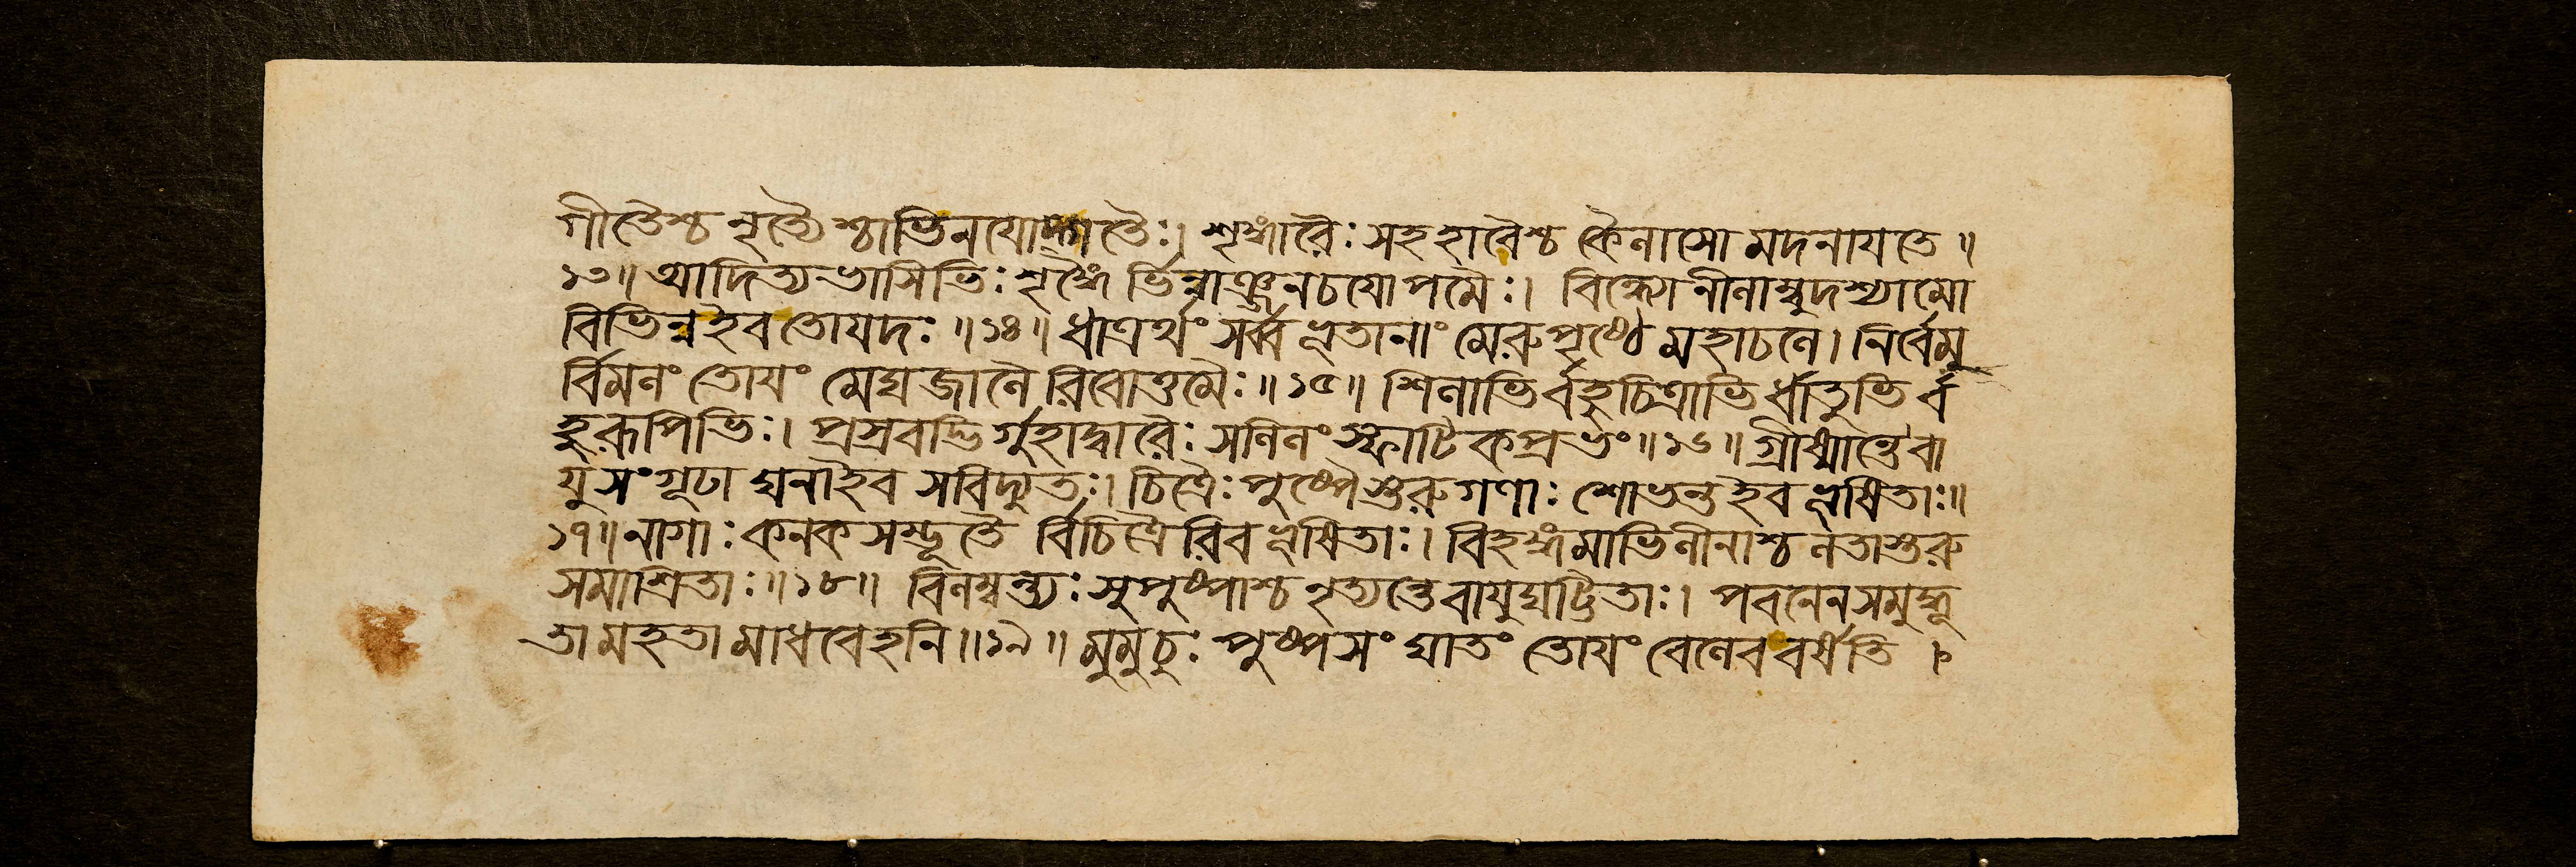 গীতৈশ্চ নৃত্যৈশ্চাভিনযোদ্গতৈঃ। শৃঙ্গারৈঃ সহহাবৈশ্চ কৈলাসো মদনাযতে॥
১৩॥ আদিত্যভাসিভিঃ শৃঙ্গৈর্ভিন্নাঞ্জনচযোপমৈঃ। বিন্ধ্যো নীলাম্বুদশ্যামো
বিভিন্ন ইব তোযদঃ॥১৪॥ ধাত্রর্থং সর্ব্বভূতানাং মেরুপৃষ্ঠে মহাচলে। নির্বেমু
র্বিমলং তোযং মেঘজালৈরিবোত্তমৈঃ॥১৫॥ শিলাভির্বহুচিত্রাভির্ধাতুভির্ব
হুরূপিভিঃ। প্রস্রবদ্ভির্গুহাদ্বারৈঃ সলিলং স্ফাটিকপ্রভং॥১৬॥ গ্রীষ্মান্তে বা
যুসংগূঢা ঘনা ইব সবিদ্যুতঃ। চিত্রৈঃ পুষ্পৈস্তরুগণাঃ শোভন্ত ইব ভূষিতাঃ॥
১৭॥ নাগাঃ কনকসম্ভূতৈর্বিচিত্রৈরিব ভূষিতাঃ। বিহঙ্গমাভিলীনাশ্চ লতাস্তরু
সমাশ্রিতাঃ॥১৮॥ বিলম্বন্ত্যঃ সুপুষ্পাশ্চ নৃত্যন্তে বাযুঘট্টিতাঃ। পবনেন সমুদ্ধূ
তা মহতা মাধবেহনি॥১৯॥ মুমুচুঃ পুষ্পসংঘাতং তোযং বেলেব বর্ষতি।